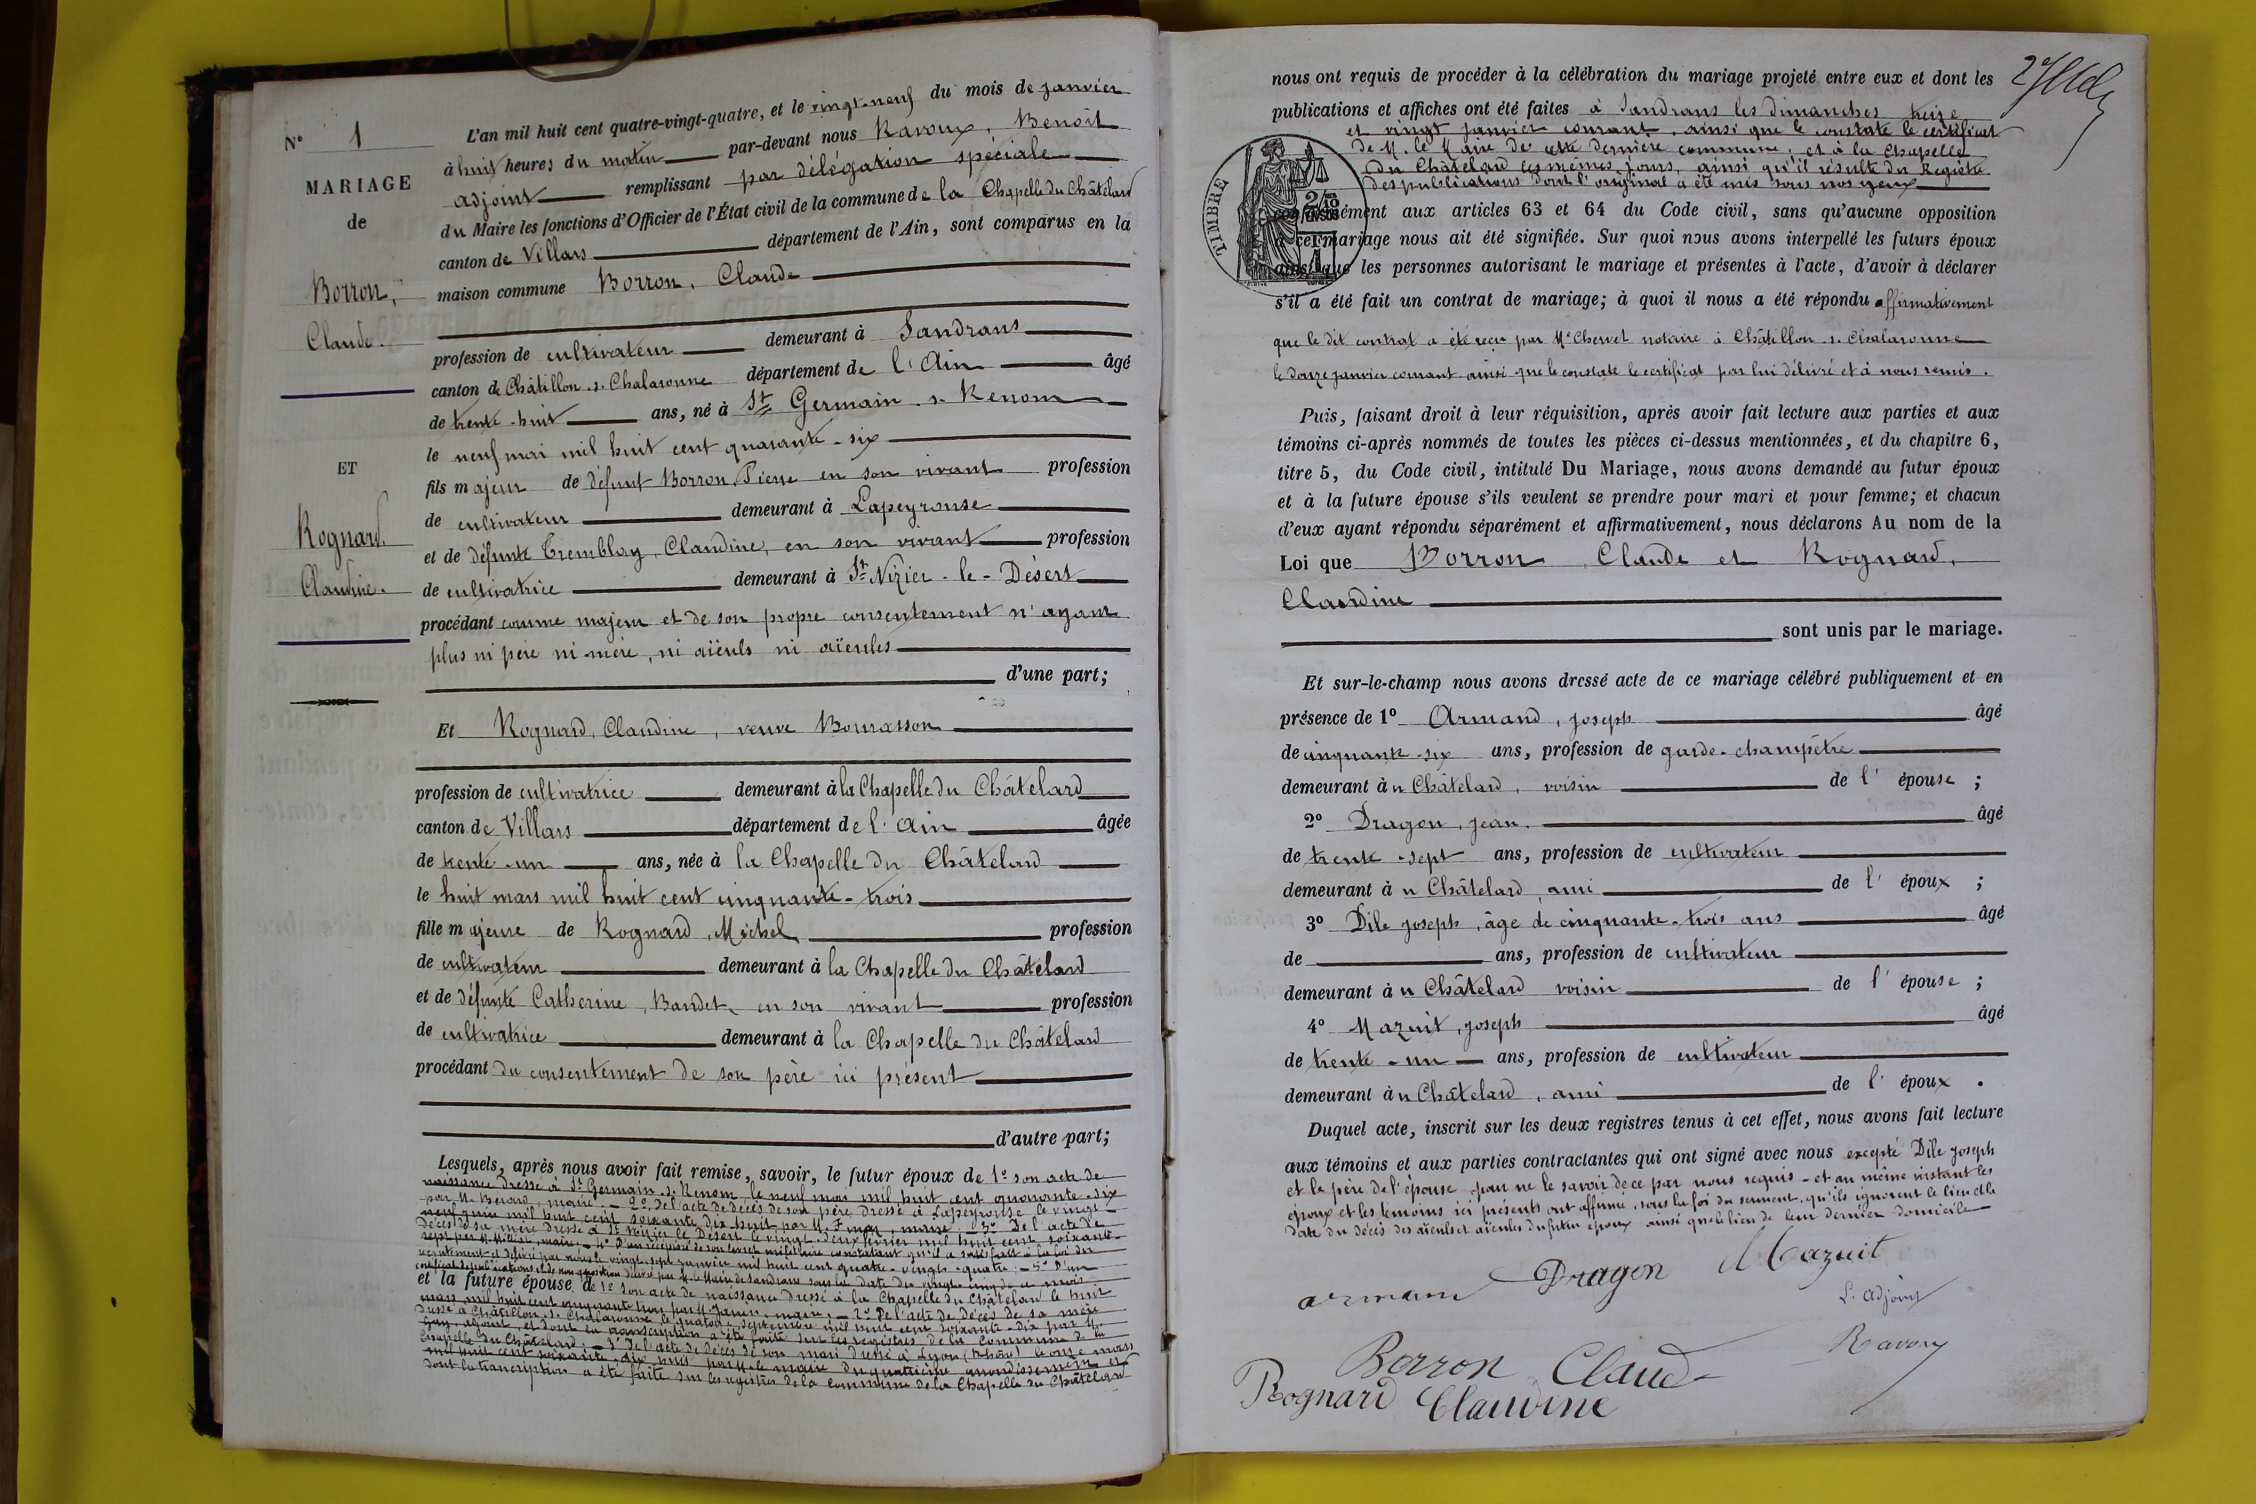 N° 1
MARIAGE
de
Borron,
Claude.
ET
Rognard
Claudine.
L'an mil huit cent quatre-vingt-quatre, et le vingt-neuf du mois de janvier
à huit heures du matin par-devant nous Ravoux, Benoît
adjoint remplissant par délégation spéciale
du Maire les fonctions d'Officier de l'État civil de la commune de la Chapelle du Châtelard
canton de Villars département de l'Ain, sont comparus en la
maison commune Borron, Claude
profession de cultivateur demeurant à Sandrans
canton de Châtillon s. Chalaronne département de l'Ain âgé
de trente-huit ans, né à St Germain s. Renom
le neuf mai mil huit cent quarante-six
fils majeur de défunt Borron Pierre en son vivant profession
de cultivateur demeurant à Lapeyrouse
et de défunte Tremblay, Claudine, en son vivant profession
de cultivatrice demeurant à St Nizier-le-Désert
procédant comme majeur et de son propre consentement n'ayant
plus ni père ni mère, ni aïeuls ni aïeules
d'une part;
Et Rognard, Claudine, veuve Bourasson
profession de cultivatrice demeurant à la Chapelle du Châtelard
canton de Villars département de l'Ain âgée
de trente-un ans, née à la Chapelle du Châtelard
le huit mars mil huit cent cinquante-trois
fille majeure de Rognard, Michel profession
de cultivateur demeurant à la Chapelle du Châtelard
et de défunte Catherine, Bandet, en son vivant profession
de cultivatrice demeurant à la Chapelle du Châtelard
procédant du consentement de son père ici présent
d'autre part;
Lesquels, après nous avoir fait remise, savoir, le futur époux de 1° son acte de
naissance dressé à St Germain s. Renom le neuf mai mil huit cent quarante-six
par M. Bérard, maire. - 2° De l'acte de décès de son père dressé à Lapeyrouse le vingt-
neuf juin mil huit cent soixante dix-huit par M. maire - 3° De l'acte de
décès de sa mère dressé à St Nizier le Désert le vingt-deux février mil huit cent soixante-
sept par M. Milliat, maire, - 4° D'un récépissé de son livret militaire constatant qu'il a satisfait à la loi du
recrutement et délivré par nous le vingt-sept janvier mil huit cent quatre-vingt-quatre - 5° D'un
certificat de publications et de non opposition délivré par M. le Maire de Sandrans sous la date du vingt-cinq de ce mois
et la future épouse de 1° son acte de naissance dressé à la Chapelle du Châtelard le huit
mars mil huit cent cinquante trois par M. Janin, maire, - 2° De l'acte de décès de sa mère
dressé à Châtillon s. Chalaronne le quatorze septembre mil huit cent soixante-dix par M.
Guy, adjoint, et dont la transcription a été faite sur les registres de la Commune de la
Chapelle du Châtelard, - 3° De l'acte de décès de son mari dressé à Lyon (Rhône) le onze mars
mil huit cent soixante-dix huit par M. le maire du quatrième arrondissement et
dont la transcription a été faite sur les registres de la commune de la Chapelle du Châtelard
nous ont requis de procéder à la célébration du mariage projeté entre eux et dont les
publications et affiches ont été faites à Sandrans les dimanches treize
et vingt janvier courant, ainsi que le constate le certificat
de M. le Maire de cette dernière commune, et à la Chapelle
du Châtelard les mêmes jours, ainsi qu'il résulte du Registre
des publications dont l'original a été mis sous nos yeux
TIMBRE
conformément aux articles 63 et 64 du Code civil, sans qu'aucune opposition
à ce mariage nous ait été signifiée. Sur quoi nous avons interpellé les futurs époux
ainsi que les personnes autorisant le mariage et présentes à l'acte, d'avoir à déclarer
s'il a été fait un contrat de mariage; à quoi il nous a été répondu affirmativement
que le dit contrat a été reçu par Me Chervet notaire à Châtillon s. Chalaronne
le douze janvier courant ainsi que le constate le certificat par lui délivré et à nous remis.
Puis, faisant droit à leur réquisition, après avoir fait lecture aux parties et aux
témoins ci-après nommés de toutes les pièces ci-dessus mentionnées, et du chapitre 6,
titre 5, du Code civil, intitulé Du Mariage, nous avons demandé au futur époux
et à la future épouse s'ils veulent se prendre pour mari et pour femme; et chacun
d'eux ayant répondu séparément et affirmativement, nous déclarons Au nom de la
Loi que Borron Claude et Rognard,
Claudine
sont unis par le mariage.
Et sur-le-champ nous avons dressé acte de ce mariage célébré publiquement et en
présence de 1° Armand, joseph âgé
de cinquante-six ans, profession de garde-champêtre
demeurant à u Châtelard, voisin de l'épouse;
2° Dragon, jean, âgé
de trente-sept ans, profession de cultivateur
demeurant à u Châtelard, ami de l'époux;
3° Dile joseph, âgé de cinquante-trois ans âgé
de ans, profession de cultivateur
demeurant à u Châtelard voisin de l'épouse;
4° Mazuit, joseph âgé
de trente-un ans, profession de cultivateur
demeurant à u Châtelard, ami de l'époux.
Duquel acte, inscrit sur les deux registres tenus à cet effet, nous avons fait lecture
aux témoins et aux parties contractantes qui ont signé avec nous excepté Dile joseph
et le père de l'épouse pour ne le savoir de ce par nous requis - et au même instant les
époux et les témoins ici présents ont affirmé, sous la foi du serment, qu'ils ignorent le lieu et la
date du décès des aïeuls et aïeules du futur époux ainsi que le lieu de leur dernier domicile
Dragon Mazuit
armand
L'adjoint
Ravoux
Borron Claude
Rognard Claudine